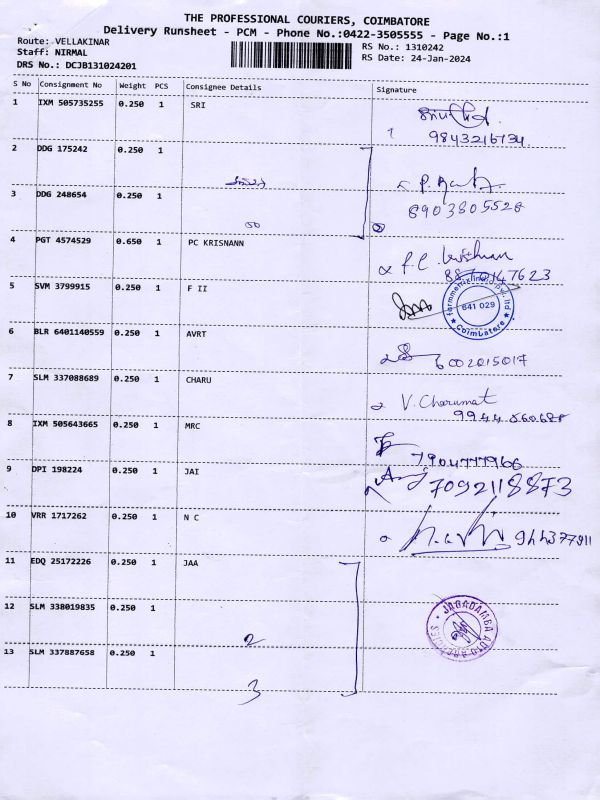 THE PROFESSIONAL COURIERS, COIMBATORE
Delivery Runsheet - PCM - Phone No.:0422-3505555 - Page No.:1
Route: VELLAKINAR
RS No.: 1310242
Staff: NIRMAL
RS Date: 24-Jan-2024
DRS No.: DCJB131024201
S No Consignment No Weight PCS Consignee Details Signature
1 IXM 505735255 0.250 1 SRI
9843216734
2 DDG 175242 0.250 1
3 DDG 248654 0.250 1
8903805528
4 PGT 4574529 0.650 1 PC KRISNANN
5 SVM 3799915 0.250 1 F II
641 029
Coimbatore
6 BLR 6401140559 0.250 1 AVRT
6002015017
7 SLM 337088689 0.250 1 CHARU
V. Charumat
9944560688
8 IXM 505643665 0.250 1 MRC
7904777966
9 DPI 198224 0.250 1 JAI
7092118873
10 VRR 1717262 0.250 1 N C
944377911
11 EDQ 25172226 0.250 1 JAA
12 SLM 338019835 0.250 1
2
JAGADAMBA AUTO AGENCIES
13 SLM 337887658 0.250 1
3